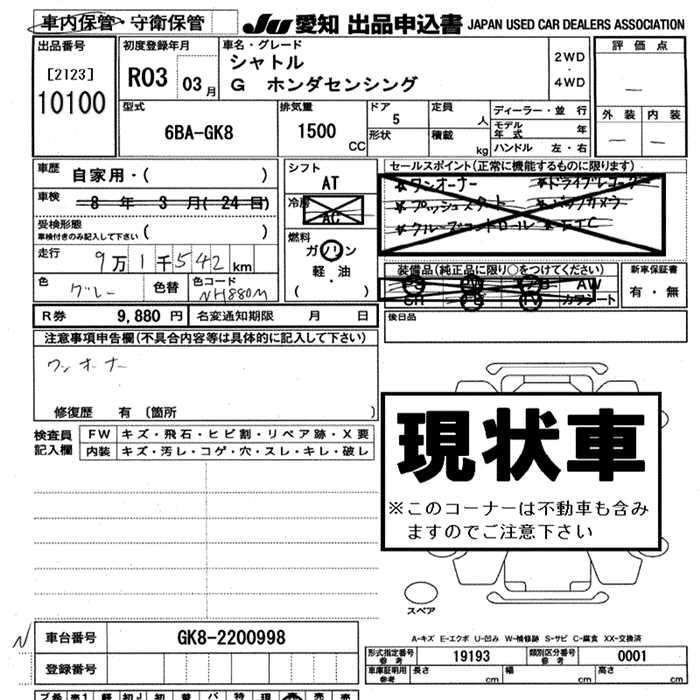 車内保管・守衛保管
JU 愛知 出品申込書 JAPAN USED CAR DEALERS ASSOCIATION
出品番号
[2123]
10100
初度登録年月
R03 03月
車名・グレード
シャトル
G ホンダセンシング
2WD
・
4WD
評価点
—
外装 内装
— —
型式
6BA-GK8
排気量
1500 CC
ドア
5
形状
定員
人
積載
kg
ディーラー・並行
モデル年式 年
ハンドル 左・右
車歴
自家用・( )
車検
8 年 3 月(24日)
受検形態
車検付きのみ記入して下さい ( )
走行
9万1千542km
色
グレー
色替
色コード
NH880M
シフト
AT
冷房
AC
燃料
ガソリン
軽・油
( )
セールスポイント(正常に機能するものに限ります)
★ワンオーナー ★ドライブレコーダ
★プッシュスタート ★バックカメラ
★クルーズコントロール ★ETC
装備品(純正品に限り○をつけてください)
AW
カワシート
新車保証書
有・無
R券 9,880 円
名変通知期限 月 日
後日品
注意事項申告欄(不具合内容等は具体的に記入して下さい)
ワンオーナー
修復歴 有 〔箇所 〕
検査員記入欄
FW キズ・飛石・ヒビ割・リペア跡・X要
内装 キズ・汚レ・コゲ・穴・スレ・キレ・破レ
現状車
※このコーナーは不動車も含み
ますのでご注意下さい
スペア
A-キズ E-エクボ U-凹み W-補修跡 S-サビ C-腐食 XX-交換済
N
車台番号 GK8-2200998
登録番号
形式指定番号 参考 19193
類別区分番号 参考 0001
車庫証明用 参考 長さ cm 幅 cm 高さ cm